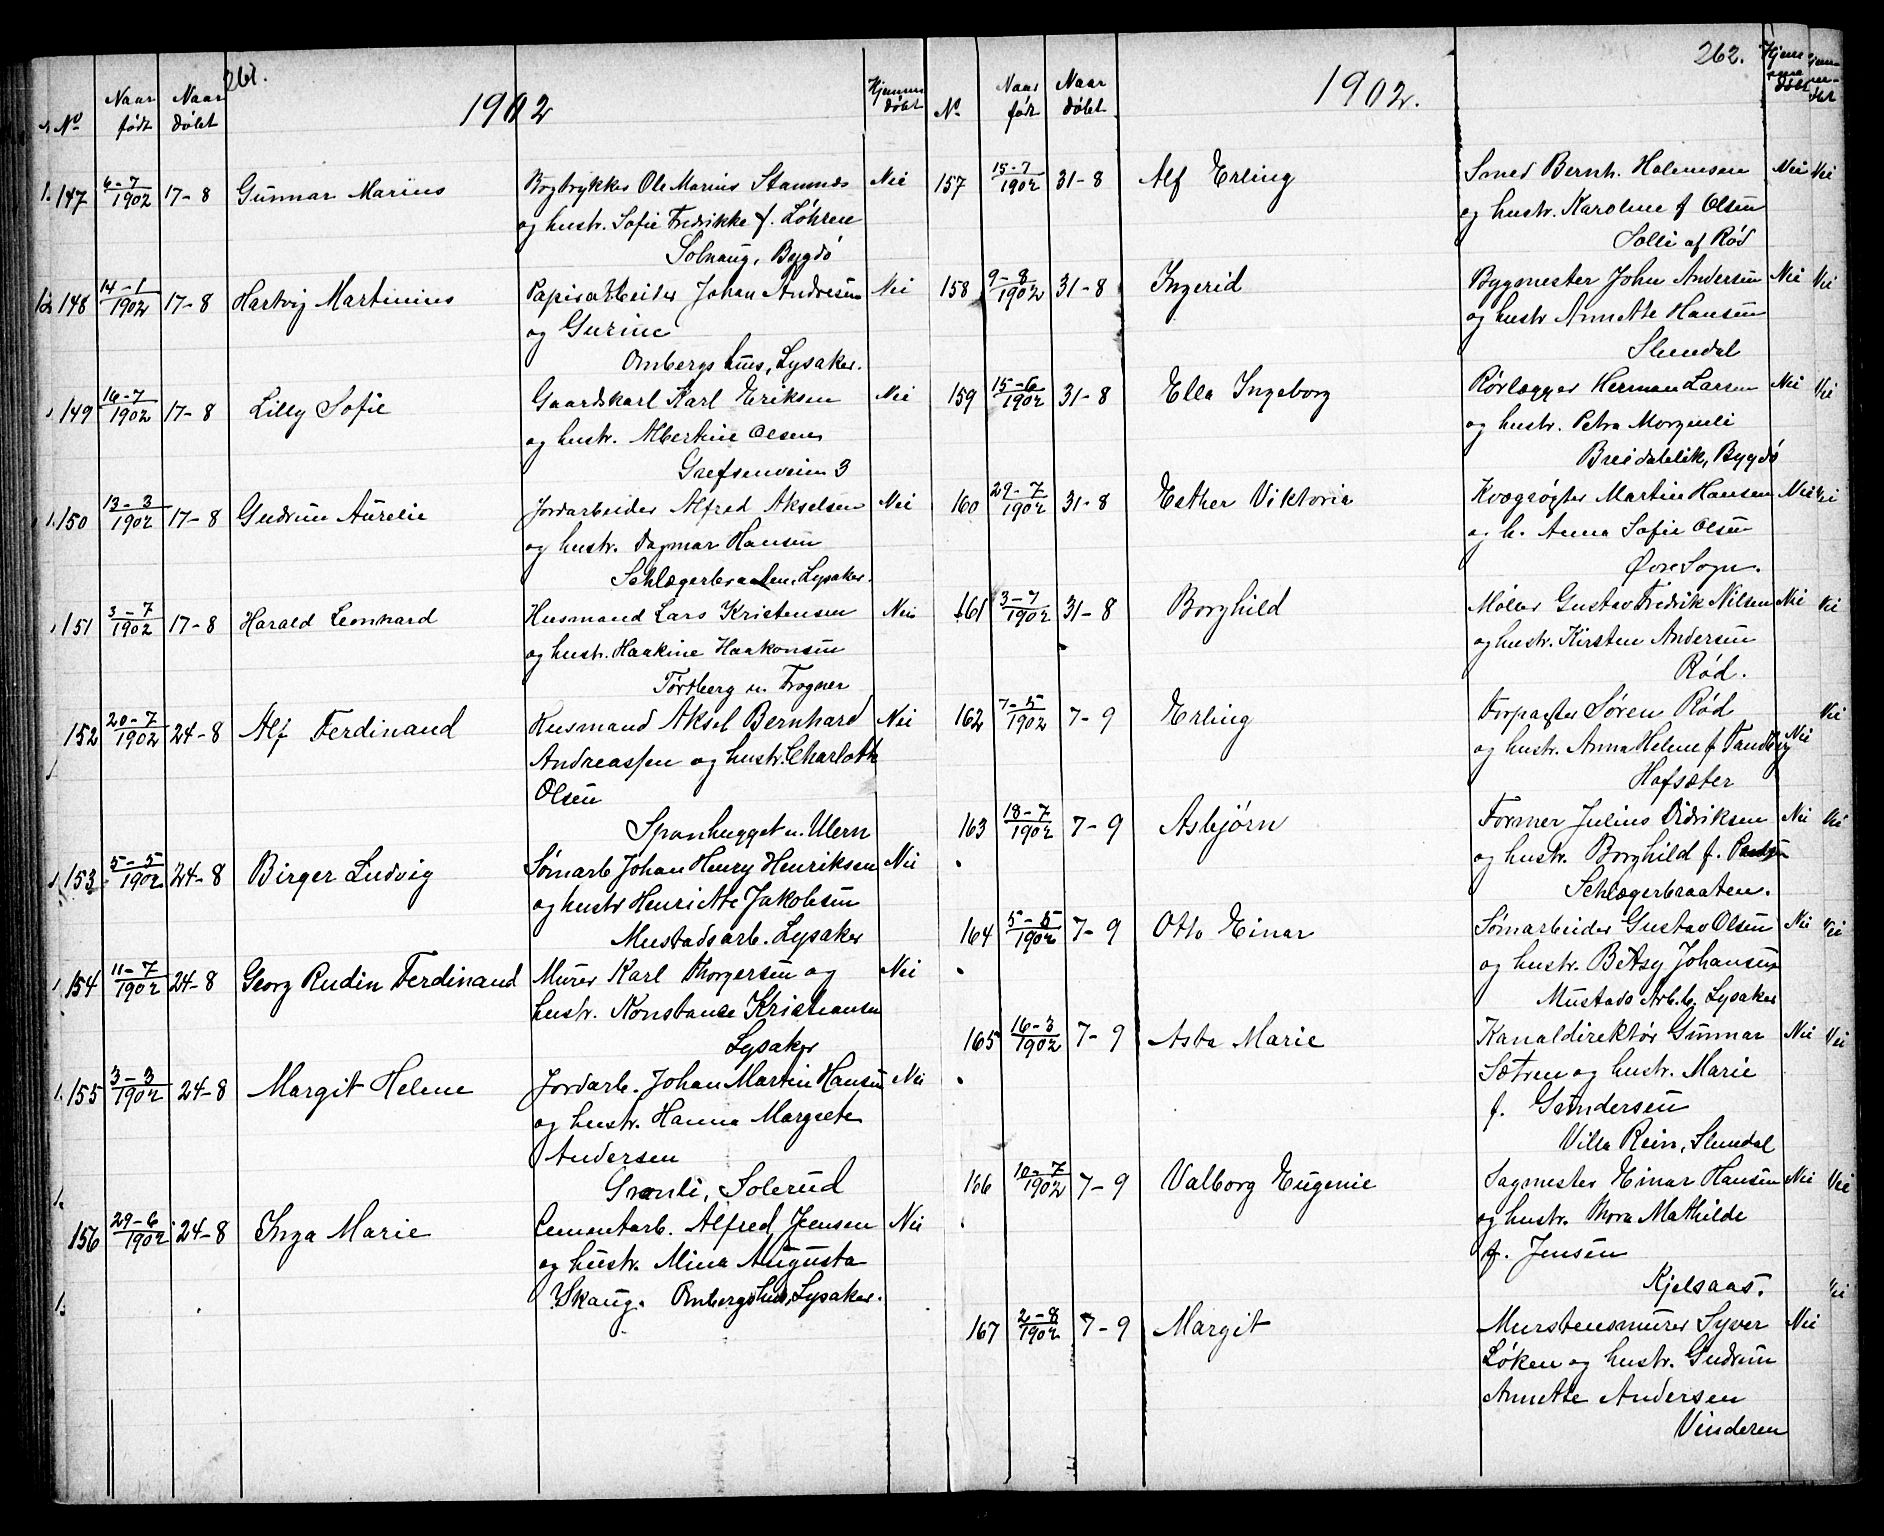 261.
1902
No Naar født Naar døbt Hjemme døbt
147 6-7/1902 17-8 Gunnar Marius Bogtrykker Ole Marius Stamnæs Nei
og hustr. Sofie Fredrikke f. Løhren
Solhaug, Bygdø
148 14-1/1902 17-8 Hartvig Martinius Papirarbeider Johan Andresen Nei
og Gurine
Ombergs hus, Lysaker.
149 16-7/1902 17-8 Lilly Sofie Gaardskarl Karl Eriksen Nei
og hustr. Albertine Olsen
Grefsenveien 3
150 13-3/1902 17-8 Gudrun Aurelie Jordarbeider Alfred Akselsen Nei
og hustr. Dagmar Hansen
Schlægerbraaten, Lysaker.
151 3-7/1902 17-8 Harald Leonhard Husmand Lars Kristensen Nei
og hustr. Haakine Haakonsen
Tørtberg u. Frogner
152 20-7/1902 24-8 Alf Ferdinand Husmand Aksel Bernhard Nei
Andreassen og hustr. Charlotte
Olsen
Sponhugget u. Ulern
153 5-5/1902 24-8 Birger Ludvig Sømarb Johan Henry Henriksen Nei
og hustr Henriette Jakobsen
Mustadsarb. Lysaker
154 11-7/1902 24-8 Georg Rudin Ferdinand Murer Karl Thorgersen og Nei
hustr. Konstanse Kristiansen
Lysaker
155 3-3/1902 24-8 Margit Helene Jordarb. Johan Martin Hansen Nei
og hustr. Hanna Margrete
Andersen
Granli, Solerud
156 29-6/1902 24-8 Inga Marie Cementarb. Alfred Jensen Nei
og hustr. Mina Augusta
Skaug. Ombergshus, Lysaker.
262.
1902.
No Naar født Naar døbt Hjemme døbt
157 15-7/1902 31-8 Alf Erling Smed Bernh. Holmsen Nei Nei
og hustr. Karoline f Olsen
Solli af Rød
158 9-8/1902 31-8 Ingerid Bygmester John Andersen Nei Nei
og hustr Annette Hansen
Slemdal
159 15-6/1902 31-8 Ella Ingeborg Rørlægger Herman Larsen Nei Nei
og hustr. Petra Morgenli
Breidablik, Bygdø
160 29-7/1902 31-8 Esther Viktoria Kvægrøgter Martin Hansen Nei Nei
og h. Anna Sofie Olsen
Øvre Sogn.
161 3-7/1902 31-8 Borghild Møller Gustav Fredrik Nilsen Nei Nei
og hustr. Kirsten Andersen
Rød.
162 7-5/1902 7-9 Erling Forpagter Søren Rød Nei
og hustr. Anna Helene f. Tandberg Nei
Hofsæter
163 18-7/1902 7-9 Asbjørn Former Julius Didriksen Nei Nei
og hustr. Borghild f.
Schlægerbraaten.
164 5-5/1902 7-9 Otto Einar Sømarbeider Gustav Olsen Nei Nei
og hustr. Betsy Johansen
Mustads Arb.b. Lysaker
165 16-3/1902 7-9 Asta Marie Kanaldirektør Gunnar Nei Nei
Sætren og hustr. Marie
f. Gundersen
Villa Rein, Slemdal
166 10-7/1902 7-9 Valborg Eugenie Sagmester Einar Hansen Nei Nei
og hustr. Thora Mathilde
f. Jensen
Kjelsaas. Nei
167 2-8/1902 7-9 Margit Murstensmurer Syver Nei
Løken og hustr. Gudrun
Annette Andersen
Vinderen